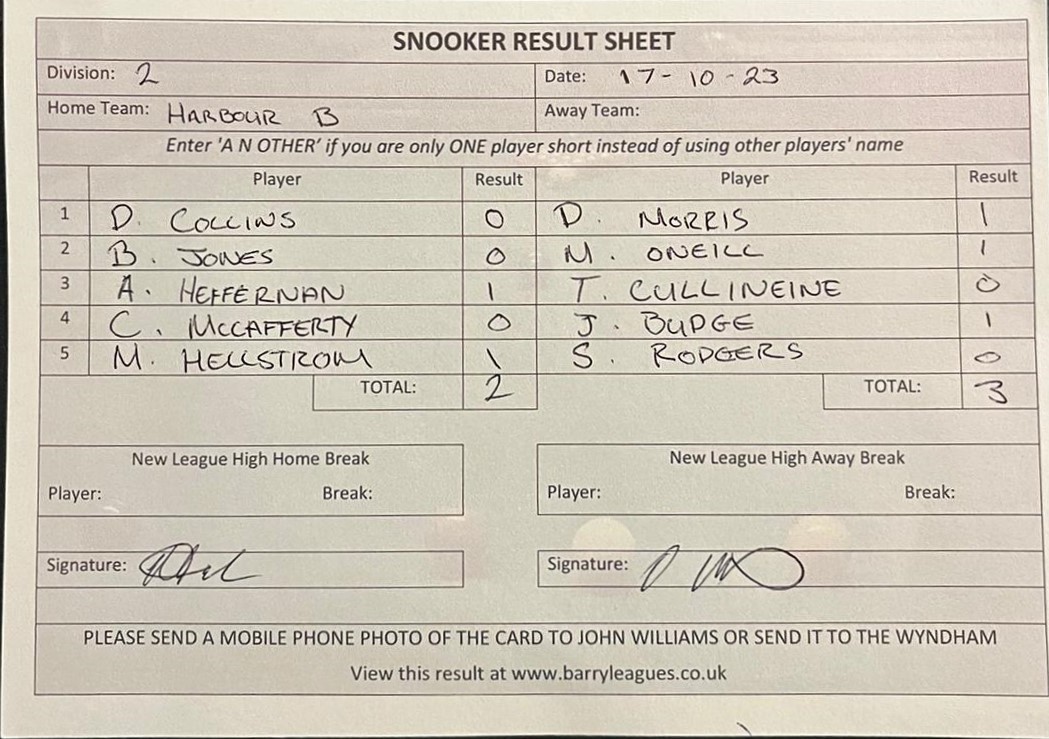 SNOOKER RESULT SHEET
Division: 2 Date: 17-10-23
Home Team: HARBOUR B Away Team:
Enter 'A N OTHER' if you are only ONE player short instead of using other players' name
Player Result Player Result
1 D. COLLINS 0 D. MORRIS 1
2 B. JONES 0 M. ONEILL 1
3 A. HEFFERNAN 1 T. CULLINEINE 0
4 C. MCCAFFERTY 0 J. BUDGE 1
5 M. HELLSTROM 1 S. RODGERS 0
TOTAL: 2 TOTAL: 3
New League High Home Break New League High Away Break
Player: Break: Player: Break:
Signature: Signature:
PLEASE SEND A MOBILE PHONE PHOTO OF THE CARD TO JOHN WILLIAMS OR SEND IT TO THE WYNDHAM
View this result at www.barryleagues.co.uk